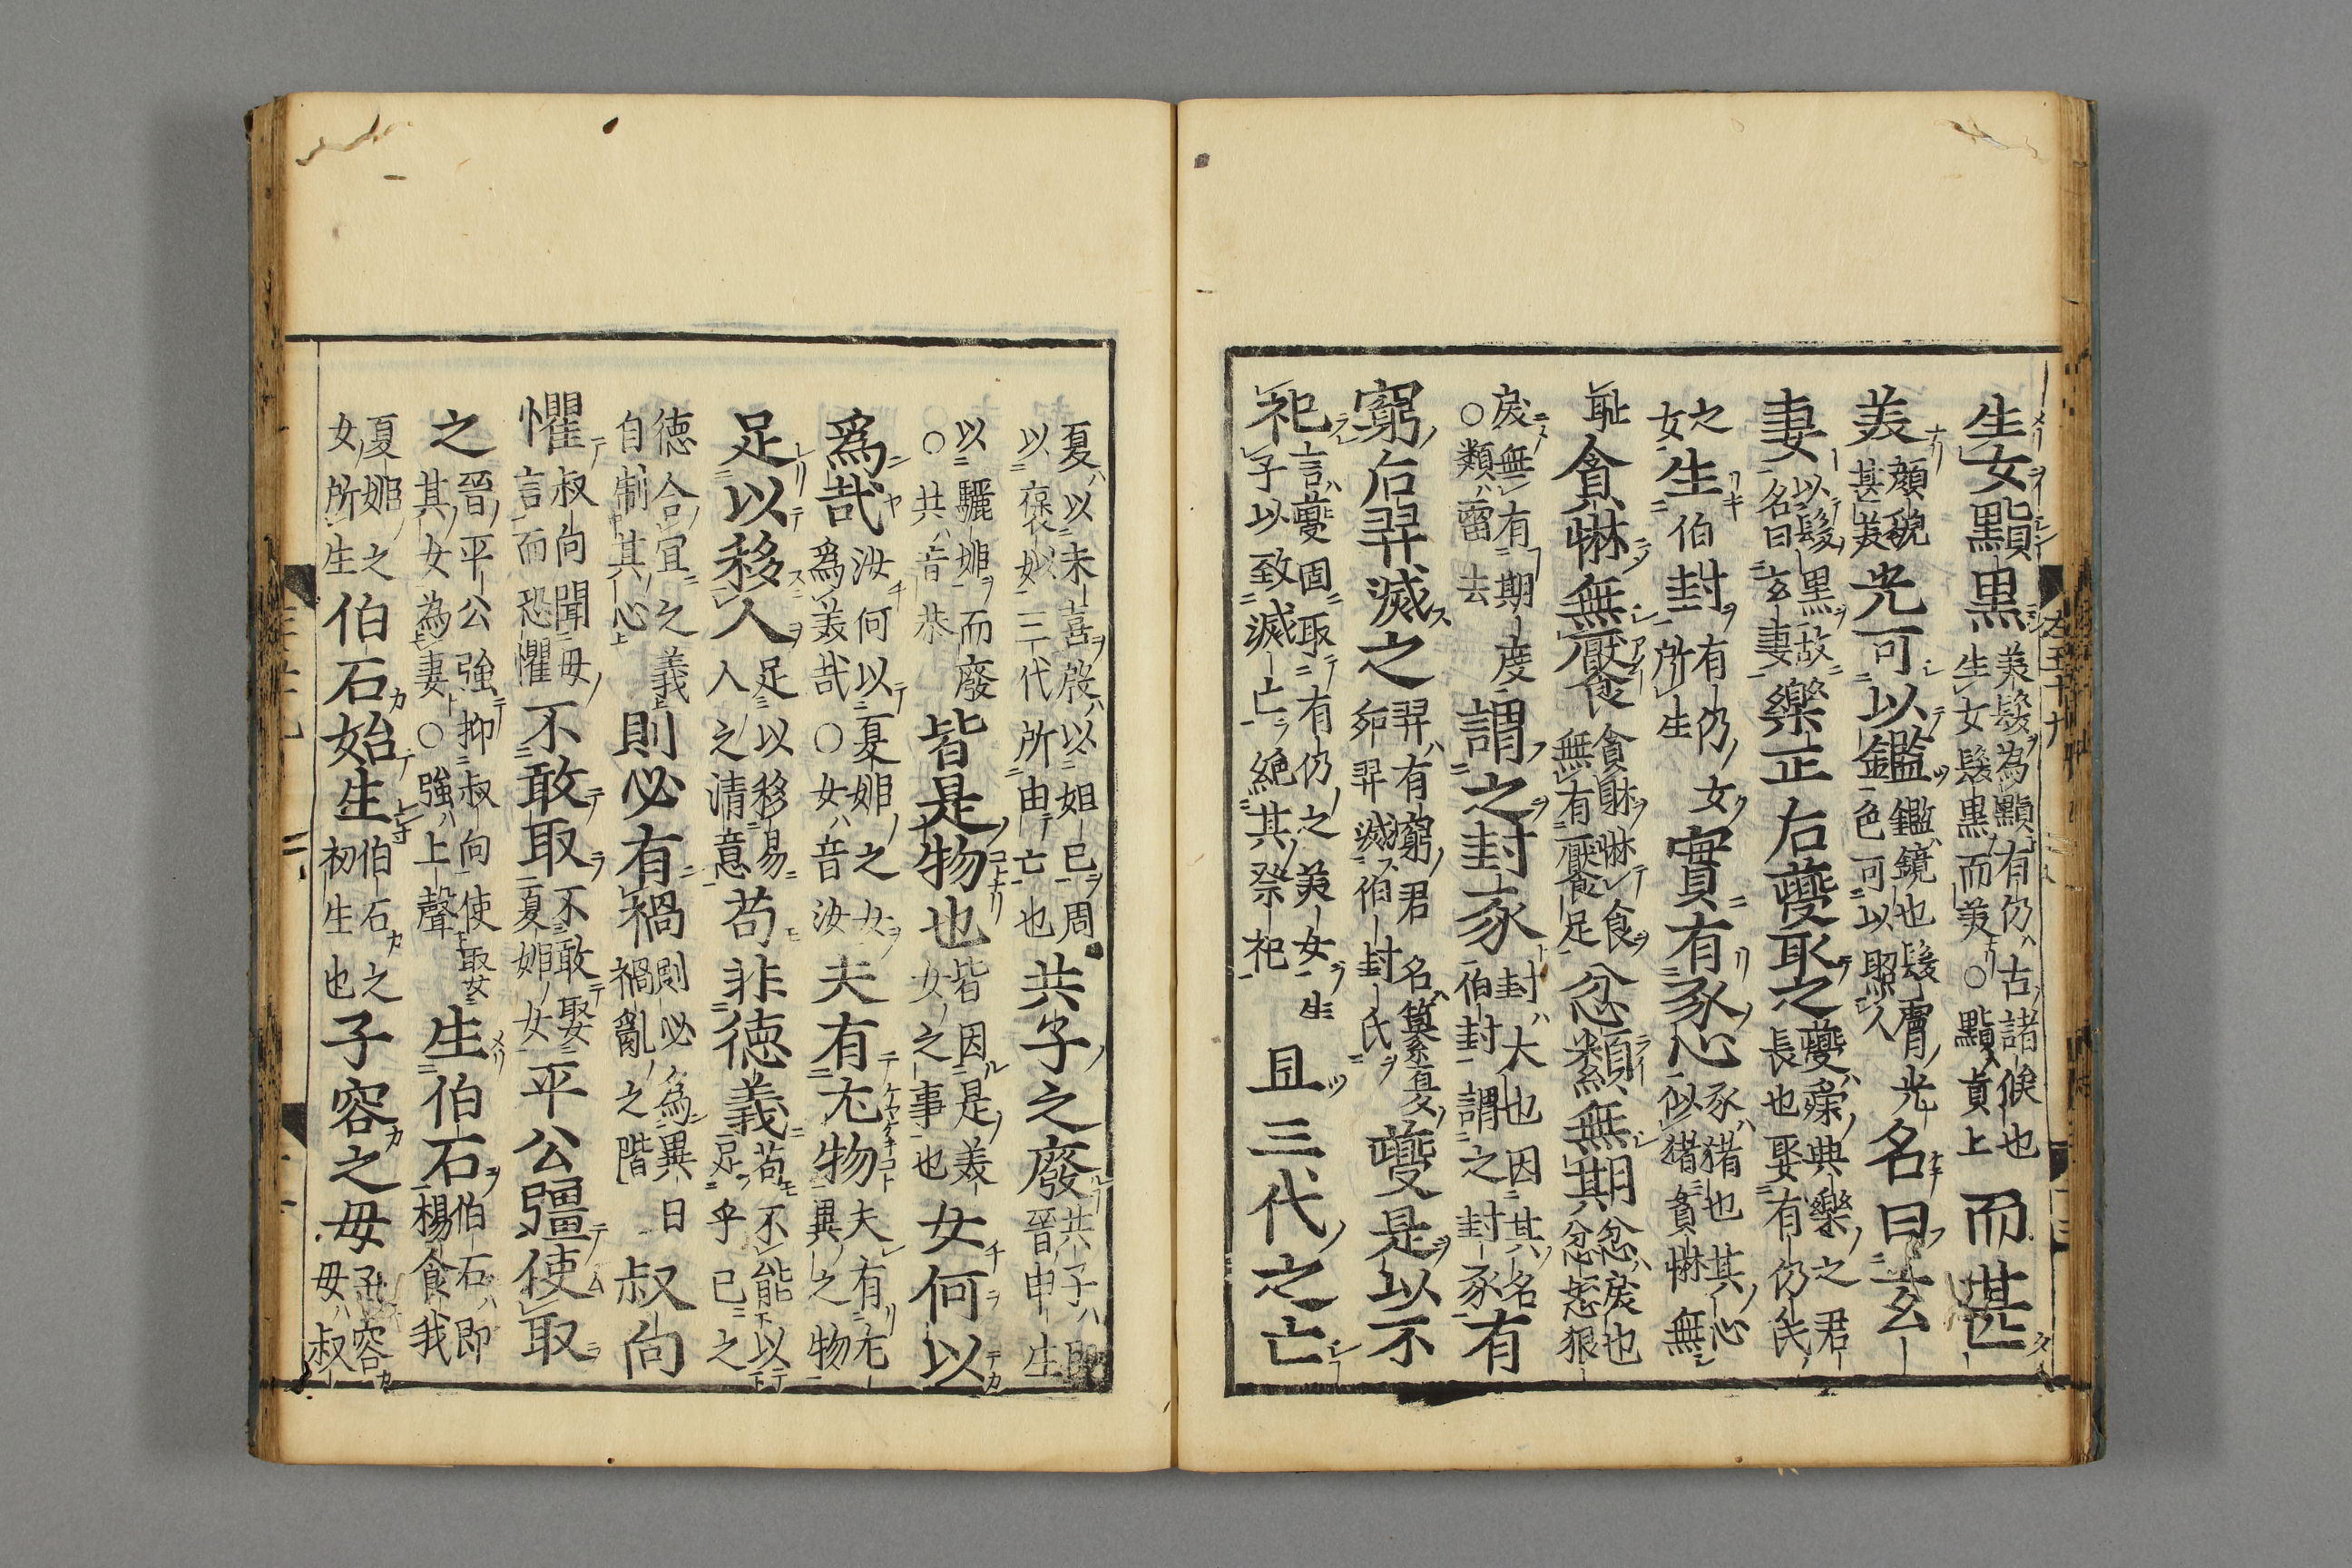 生女黰黒美髮為黰有仍古諸侯也生女髮黒而美○黰眞上而甚
美顔貌甚美光可以鑑鑑鏡也髮膚光色可以照人名曰玄
妻以髮黒故名曰玄妻樂正后夔取之夔舜典樂之君長也娶有仍氏
之女生伯封有仍女所生實有豕心豕猪也其心似猪貪惏無
耻貪惏無饜貪財惏食無有饜足忿纇無期忿戾也忿怒狠
戾無有期度○纇雷去謂之封豕封大也因其名伯封謂之封豕有
窮后羿滅之羿有窮君名簒夏羿滅伯封氏夔是以不
祀言夔固取有仍之美女生子以致滅亡絶其祭祀且三代之亡
夏以末喜殷以妲己周以褒姒三代所由亡也共子之廢共子即晉申生
以驪姫而廢○共音恭皆是物也皆因是美女之事也女何以
爲哉汝何以夏姫之女爲美哉○女音汝夫有尤物夫有尤異之物
足以移人足以移易人之清意苟非徳義苟不能以足乎已之
徳合宜之義自制其心則必有禍則必為異日禍亂之階叔向
懼叔向聞毋言而恐懼不敢取不敢娶夏姫女平公彊使取
之晉平公強抑叔向使取女其女為妻○強上聲生伯石伯石即楊食我
夏姫之女所生伯石始生伯石之初生也子容之毋子容毋叔